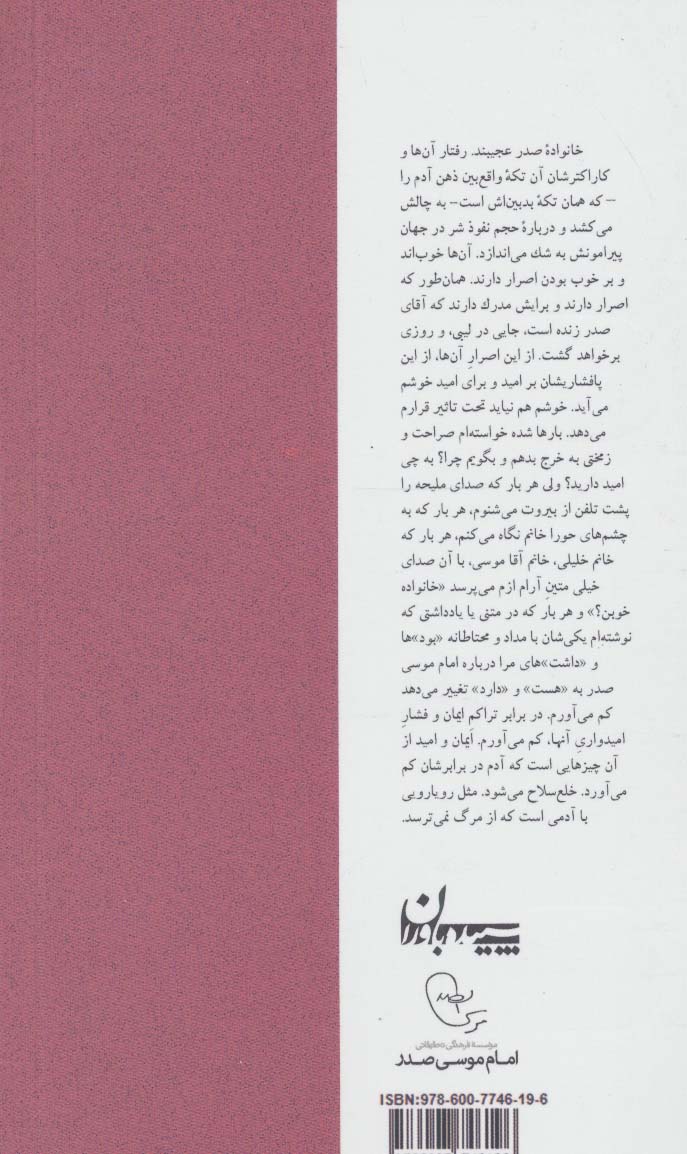 خانوادهٔ صدر عجیبند. رفتار آن‌ها و
کاراکترشان آن تکهٔ واقع‌بین ذهن آدم را
– که همان تکهٔ بدبین‌اش است – به چالش
می‌کشد و دربارهٔ حجم نفوذ شر در جهان
پیرامونش به شک می‌اندازد. آن‌ها خوب‌اند
و بر خوب بودن اصرار دارند. همان‌طور که
اصرار دارند و برایش مدرک دارند که آقای
صدر زنده است، جایی در لیبی، و روزی
برخواهد گشت. از این اصرارِ آن‌ها، از این
پافشاریشان بر امید و برای امید خوشم
می‌آید. خوشم هم نیاید تحت تاثیر قرارم
می‌دهد. بارها شده خواسته‌ام صراحت و
زمختی به خرج بدهم و بگویم چرا؟ به چی
امید دارید؟ ولی هر بار که صدای ملیحه را
پشت تلفن از بیروت می‌شنوم، هر بار که به
چشم‌های حورا خانم نگاه می‌کنم، هر بار که
خانم خلیلی، خانم آقا موسی، با آن صدای
خیلی متینِ آرام ازم می‌پرسد «خانواده
خوبن؟» و هر بار که در متنی یا یادداشتی که
نوشته‌ام یکی‌شان با مداد و محتاطانه «بود»ها
و «داشت»های مرا درباره امام موسی
صدر به «هست» و «دارد» تغییر می‌دهد
کم می‌آورم. در برابر تراکم ایمان و فشارِ
امیدواریِ آنها، کم می‌آورم. اَیمان و امید از
آن چیزهایی است که آدم در برابرشان کم
می‌آورد. خلع‌سلاح می‌شود. مثل رویارویی
با آدمی است که از مرگ نمی‌ترسد.
سپیده باوران
موسسه فرهنگی تحقیقاتی
امام موسی صدر
ISBN:978-600-7746-19-6